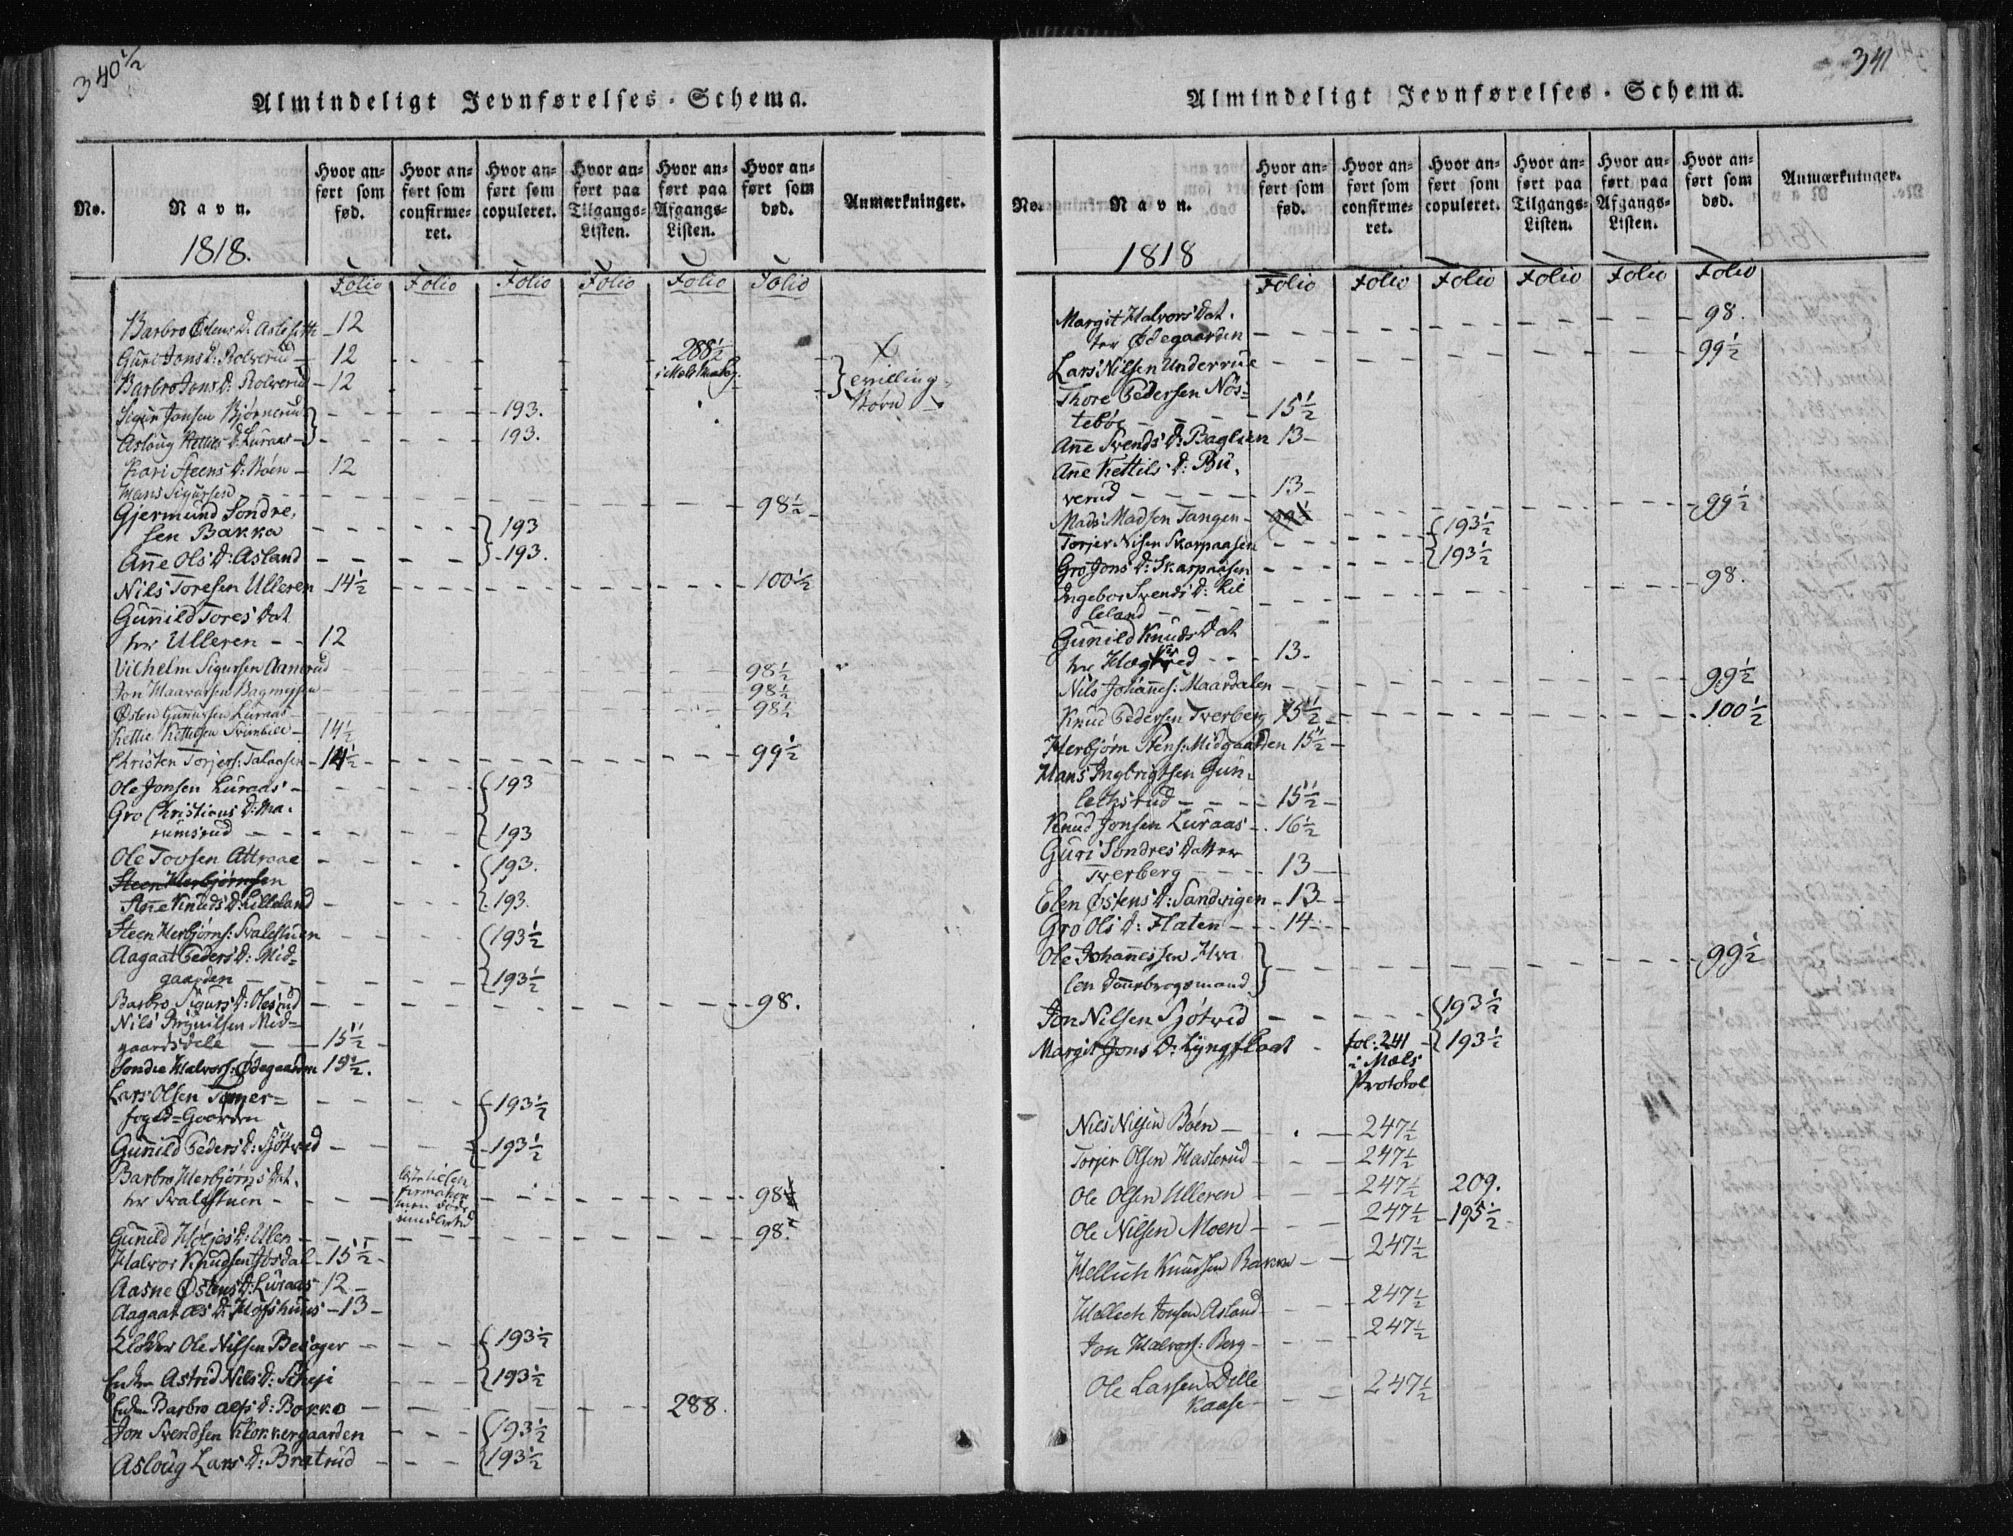 340 1/2
Almindeligt Jevnførelses-Schema.
No.
Navn.
1818.
Hvor anført som fød.
Hvor anført som confirmeret.
Hvor anført som copuleret.
Hvor anført paa Tilgangs-Listen.
Hvor anført paa Afgangs-Listen.
Hvor anført som død.
Anmærkninger.
Folio Folio Folio Folio Folio Folio
Barbro Østens D: 12
Guri Jons D: Rolverud 12 288 1/2
Barbro Jons D: Rolverud 12
Sigur Jonsen Bjørnerud 193.
Aslaug Kettils D: Luraas 193.
Kari Steens D: Bøen 12
Hans Sigursen
Gjermund Sondre, 98 1/2
sen Bakka 193
Anne Ols D: Asland 193.
Nils Toresen Ulleren 14 1/2 100 1/2
Gunild Tores Dat
ter Ulleren 12
Vilhelm Sigursen Aamerud 98 1/2
Jon Haavorsen 98 1/2
Østen Gunursen Luraas 98 1/2
Kettil Kettilsen 14 1/2
Christen Torjers: Talaasen 14 1/2 99 1/2
Ole Jonsen Luraas 193
Gro Christians D: Ma-
rumsrud 193
Ole Tovsen Attraae 193.
Steen Herbjørnsen
Anne Knuds D: Lilleland 193.
Steen Herbjørns: Svalestuen 193 1/2
Aagaat Peders D: Mid=
gaarden 193 1/2
Barbro Sigurs D: Olesrud 98.
Nils Brynilsen Mid=
gaardsdele 15 1/2
Sondre Halvors: Ødegaarden 15 1/2.
Lars Olsen Tømer=
foged=Gaarden 193 1/2
Gunild Peders D: Sjøtved 193 1/2
Barbro Herbjørns Dat.
ter Svalestuen 98 1/2
Gunild Høljes D: Ulen 98.
Halvor Knudsen Jøsdal 15 1/2
Aasne Østens D: Luraas 12
Aagaat As D: Hofshuus 13
Klokker Ole Nilsen Besager 193 1/2
Astrid Nils D: Scheji 193 1/2
Barbro D: Bakka 288.
Jon Svendsen Klokkergaarden 193 1/2
Asloug Lars D: Bratrud 193 1/2
341
Almindeligt Jevnførelses-Schema.
No.
Navn.
1818
Hvor anført som fød.
Hvor anført som confirmeret.
Hvor anført som copuleret.
Hvor anført paa Tilgangs-Listen.
Hvor anført paa Afgangs-Listen.
Hvor anført som død.
Anmærkninger.
Folio Folio Folio Folio Folio Folio
Margit Halvors Dat.
ter Ødegaarden 98.
Lars Nilsen Underrue 99 1/2
Thore Pedersen Nös=
tebøe 15 1/2
Anne Svends D: Baglien 13
Ane Kettils D: Bu,
verud 13
Mads Madsen Tangen 99 1/2
Torjer Nisen Skarpaasen 193 1/2
Gro Jons D: Skarpaasen 193 1/2
Ingebor Svends D: Lil
leland 98.
Gunild Knuds Dat
ter 13
Nils Johannes: Maardalen 99 1/2
Knud Pedersen Tverberg 15 1/2 100 1/2
Herbjørn Stens: Midgaarden 15 1/2
Hans Ingbrigtsen Gun-
lethsrud 15 1/2
Knud Jonsen Luraas 16 1/2
Guri Sondres Datter
Tverberg 13
Elen Østens D: Sandvigen 13
Gro Ols D: Flaten 14
Ole Johannessen Hva
len Dannebrogsmand 99 1/2
Jon Nilsen Sjøtved 193 1/2
Margit Jons D: Lyngflaat fol: 241 193 1/2
i Mæls
Protokol
Nils Nilsen Bøen 247 1/2
Torjer Olsen Haslerud 247 1/2
Ole Olsen Ulleren 247 1/2 209.
Ole Nilsen Moen 247 1/2 195 1/2
Hellich Knudsen Bakka 247 1/2
Hellech Jonsen Asland 247 1/2
Jon Halvors: Berg 247 1/2
Ole Larsen Dille
kaase 247 1/2